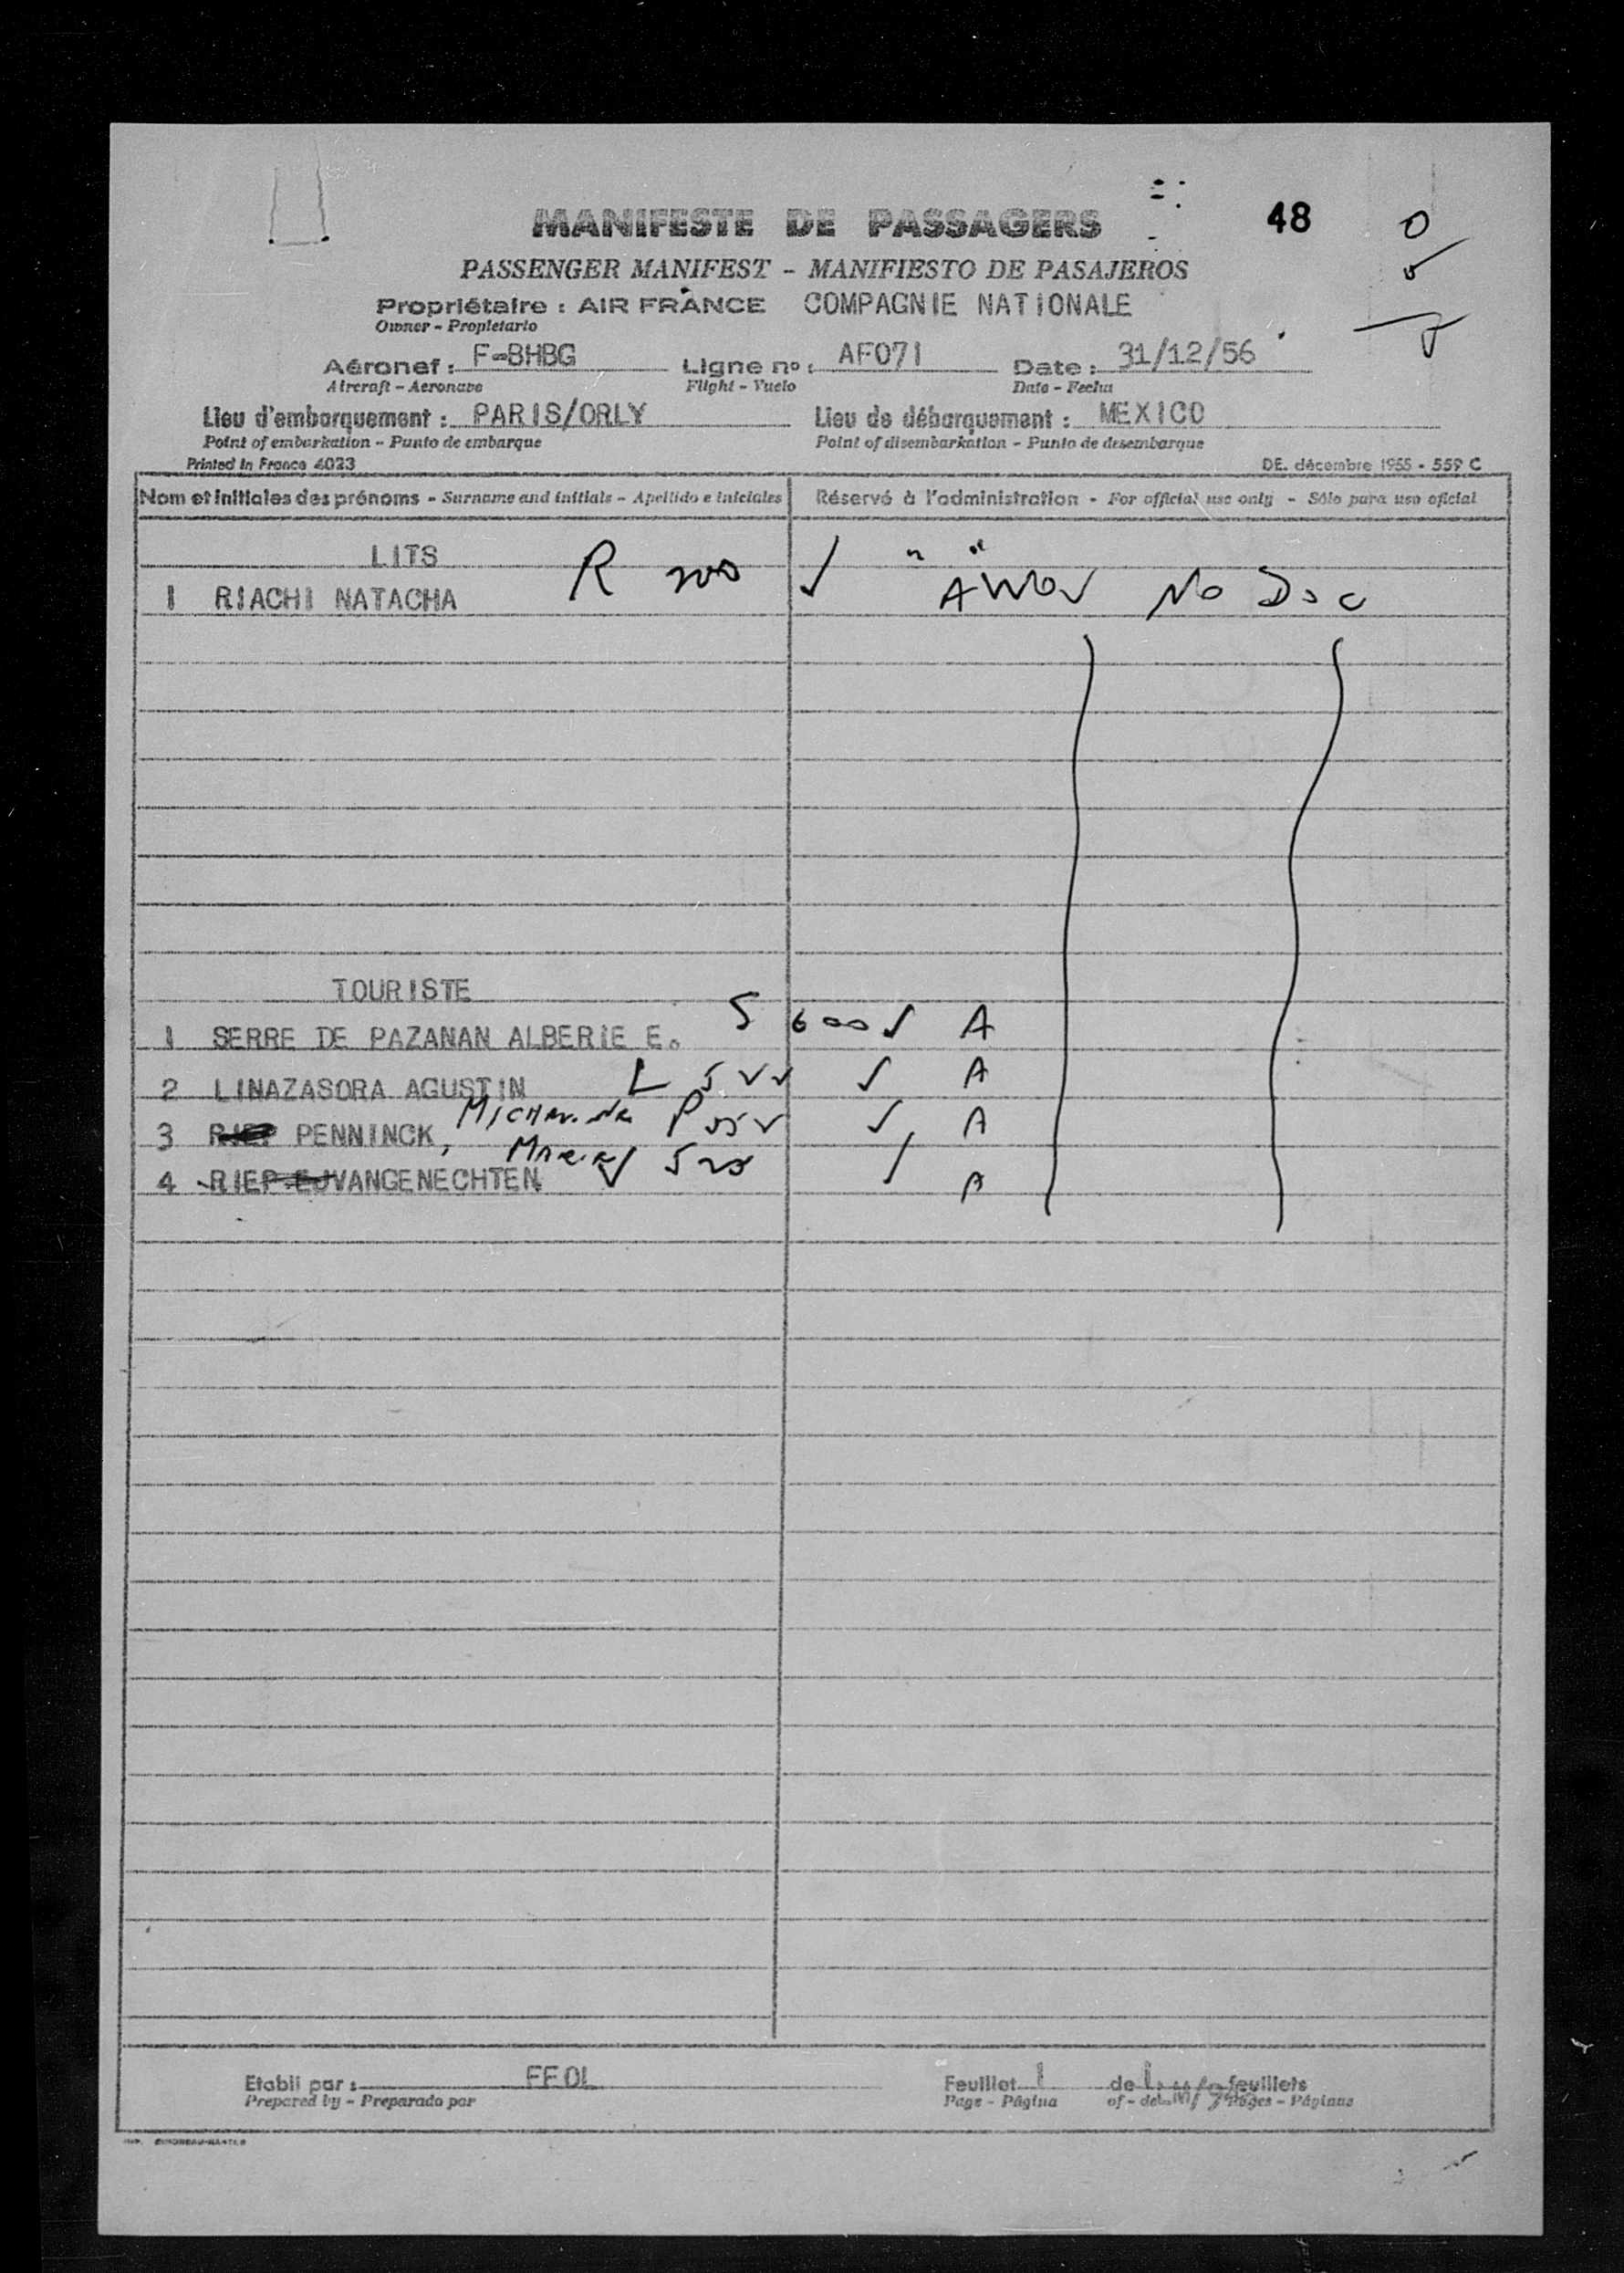 MANIFESTE DE PASSAGERS
48
PASSENGER MANIFEST - MANIFIESTO DE PASAJEROS
Propriétaire : AIR FRANCE COMPAGNIE NATIONALE
Owner - Propietario
Aéronef : F-BHBG Ligne no : AF071 Date : 31/12/56
Aircraft - Aeronave Flight - Vuelo Date - Fecha
Lieu d'embarquement : PARIS/ORLY Lieu de débarquement : MEXICO
Point of embarkation - Punto de embarque Point of disembarkation - Punto de desembarque
Printed in France 4023 DE. décembre 1955 - 559 C
Nom et initiales des prénoms - Surname and initials - Apellido e iniciales Réservé à l'administration - For official use only - Sólo para uso oficial
LITS
1 RIACHI NATACHA R 200 ✓ No Doc
TOURISTE
1 SERRE DE PAZANAN ALBERIE E. S 600 ✓ A
2 LINAZASORA AGUSTIN L ✓ A
3 PENNINCK, P ✓ A
4 RIEP EJ VANGENECHTEN Maria V 520 / A
Etabli par : FEOL Feuillet 1 de 1 feuillets
Prepared by - Preparado por Page - Página of - de Pages - Páginas